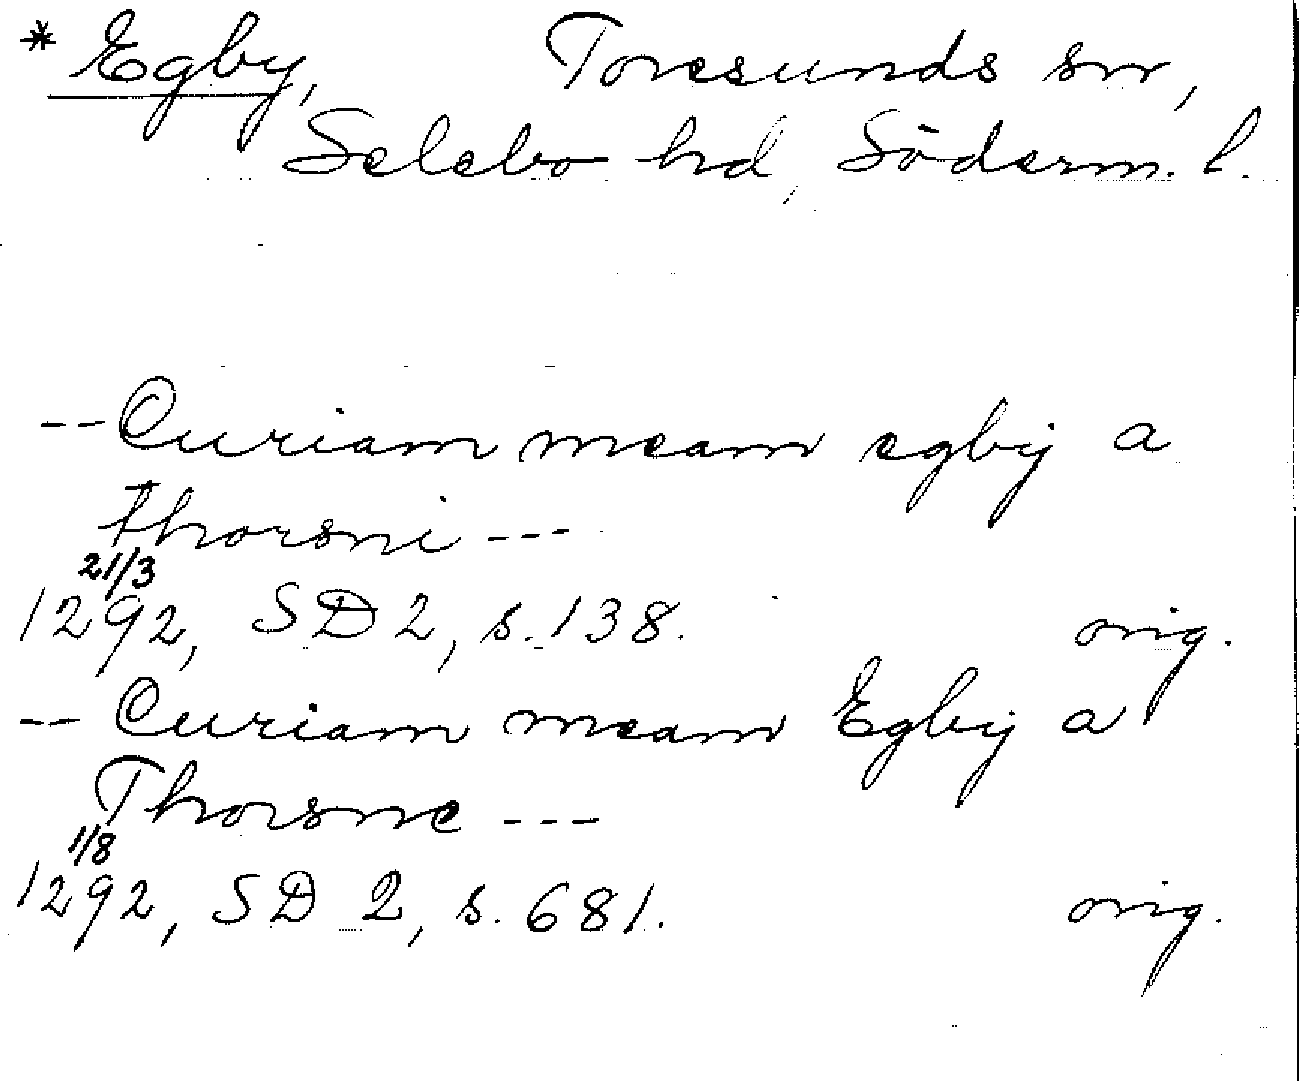 * Egby, Toresunds sn,
Selebo hd, Söderm. l.
-- Curiam meam egbij a
thorsni ---
21/3
1292, SD 2, s. 138. orig.
-- Curiam meam Egbij a
Thorsne ---
1/8
1292, SD 2, s. 681. orig.